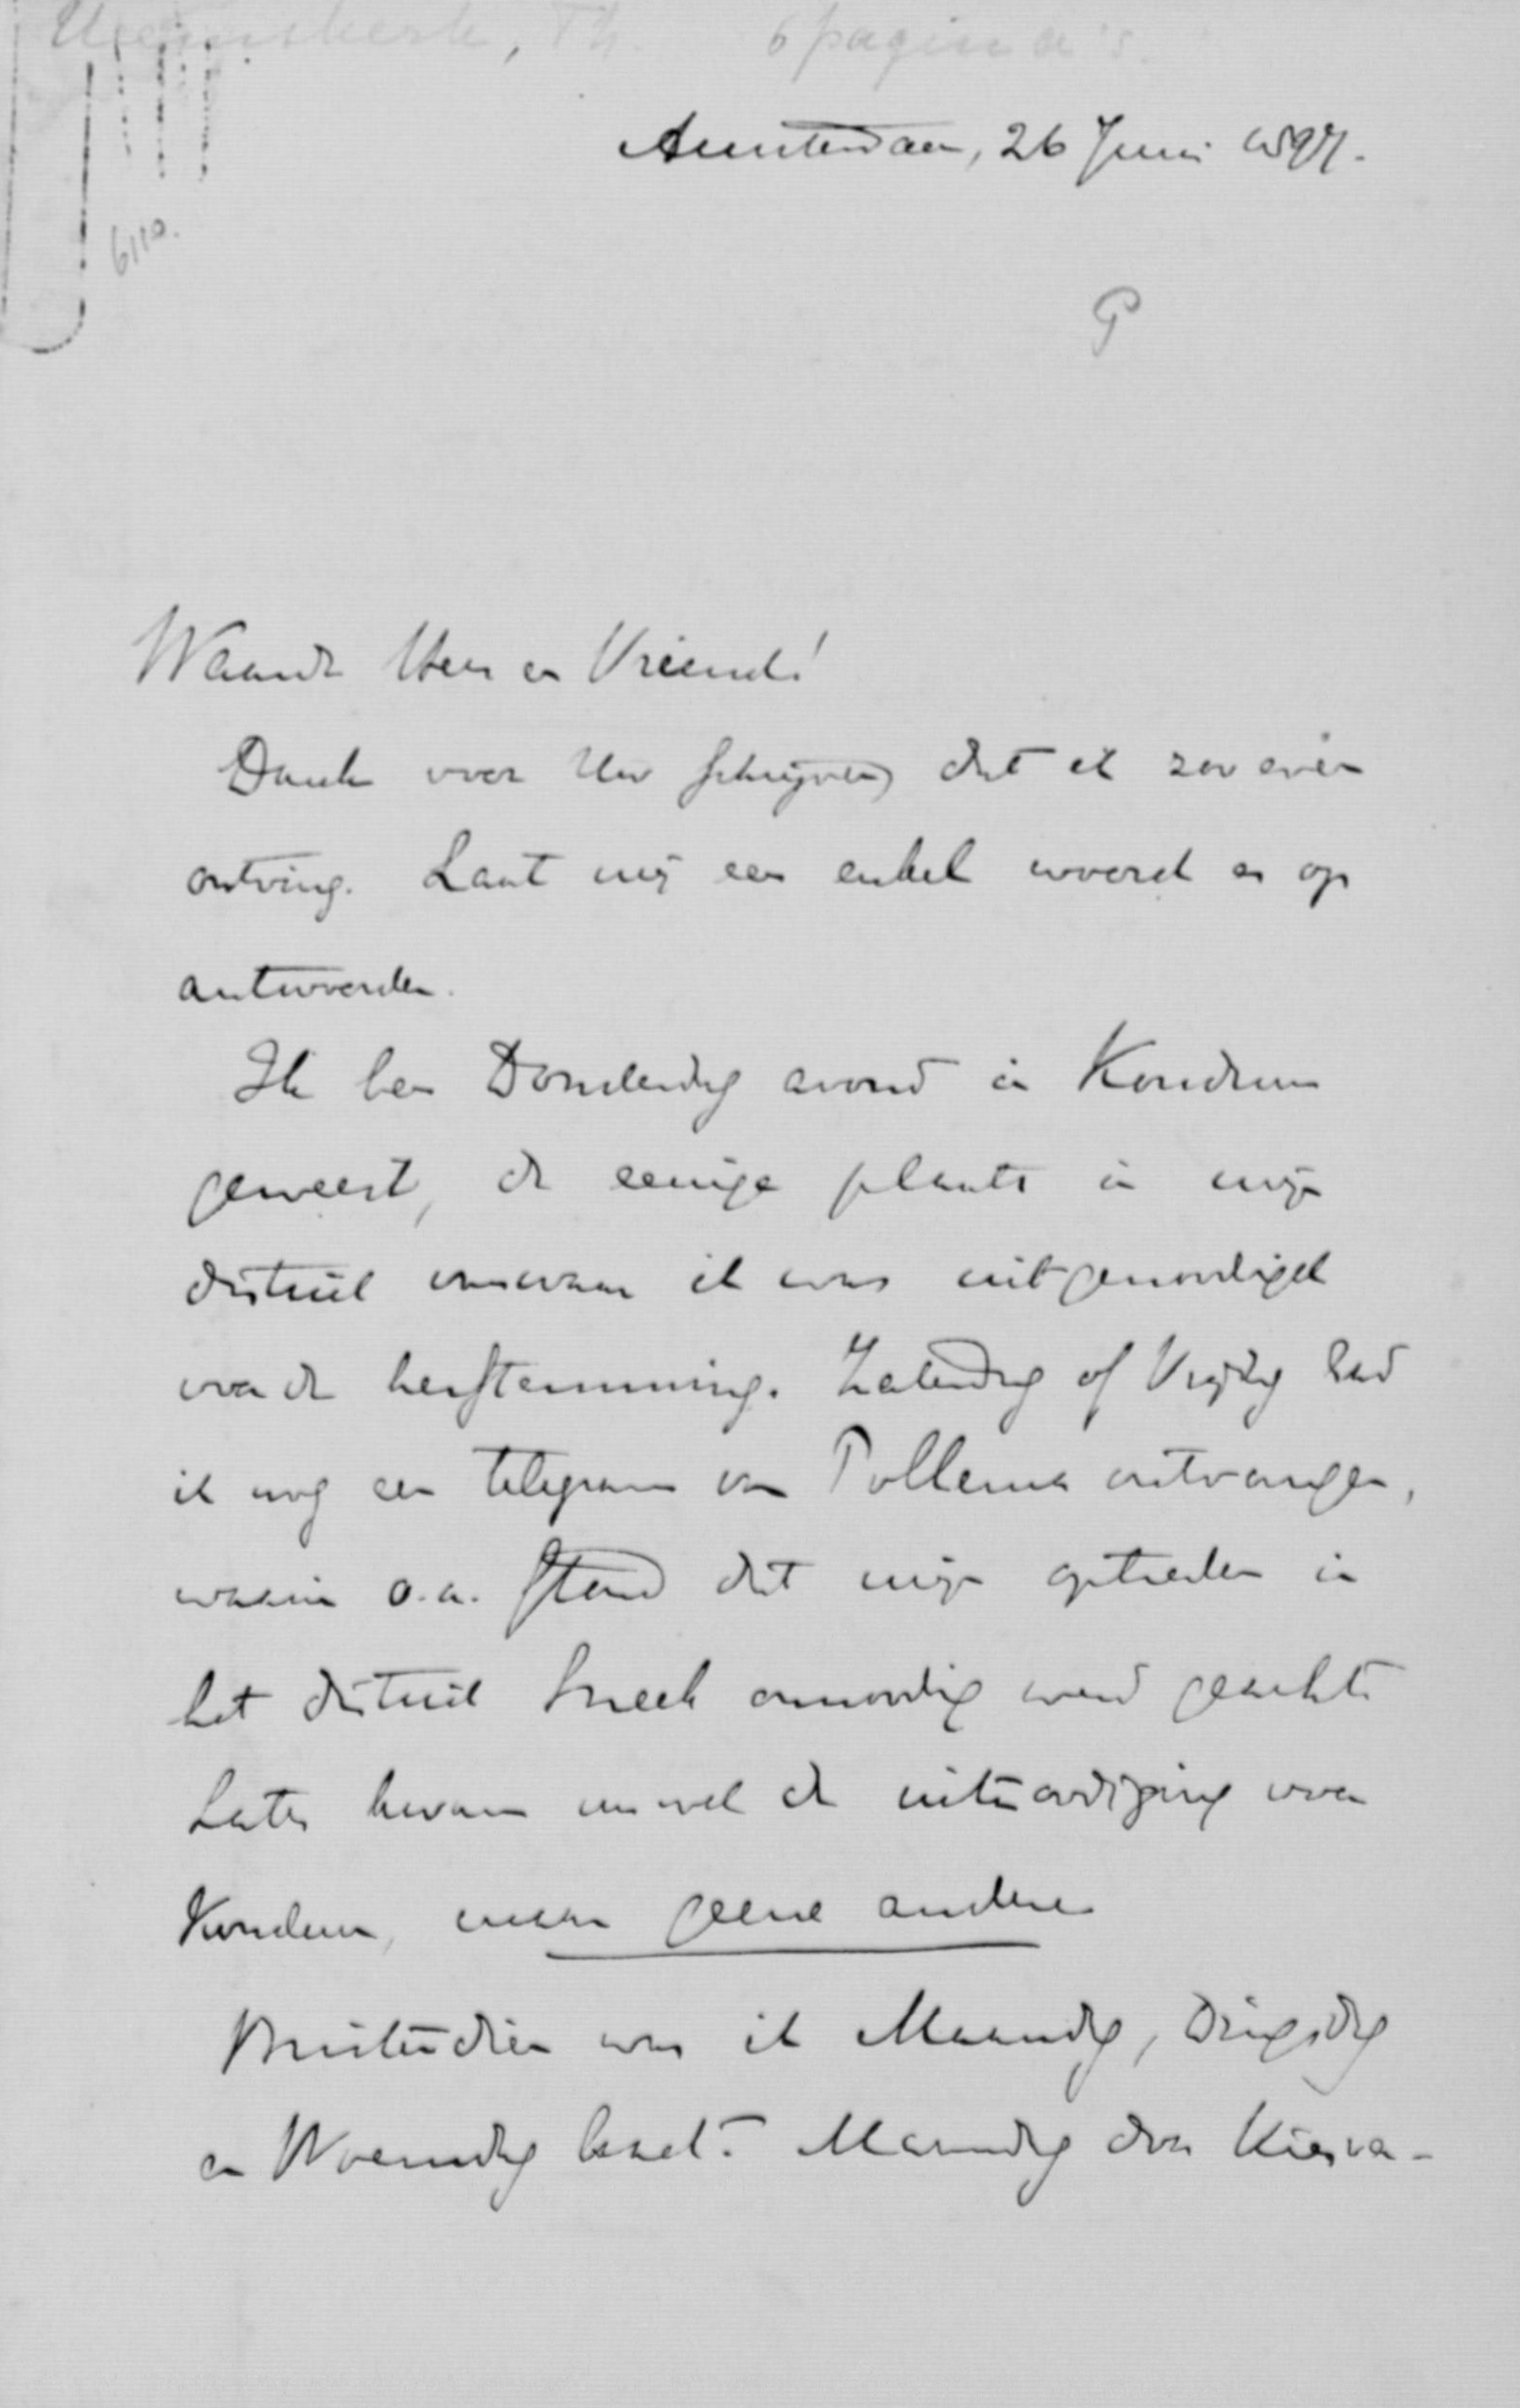 Heemskerk, Th. 6 pagina's.
Amsterdam, 26 Juni 1897.
6110.
G
Waarde Heer en Vriend!
Dank voor Uw schrijven, dat ik zoo even
ontving. Laat mij een enkel woord er op
antwoorden.
Ik ben Donderdag avond in Koudum
geweest, de eenige plaats in mijn
district vanwaar ik was uitgenoodigd
voor de herstemming. Zaterdag of Vrijdag had
ik nog een telegram van Pollema ontvangen,
waarin o.a. stond dat mijn optreden in
het district Sneek onnoodig werd geacht.
Later kwam nu wel de uitnoodiging voor
Koudum, maar geene andere
Buitendien was ik Maandag, Dingsdag
en Woensdag bezet. Maandag door Kiesver-